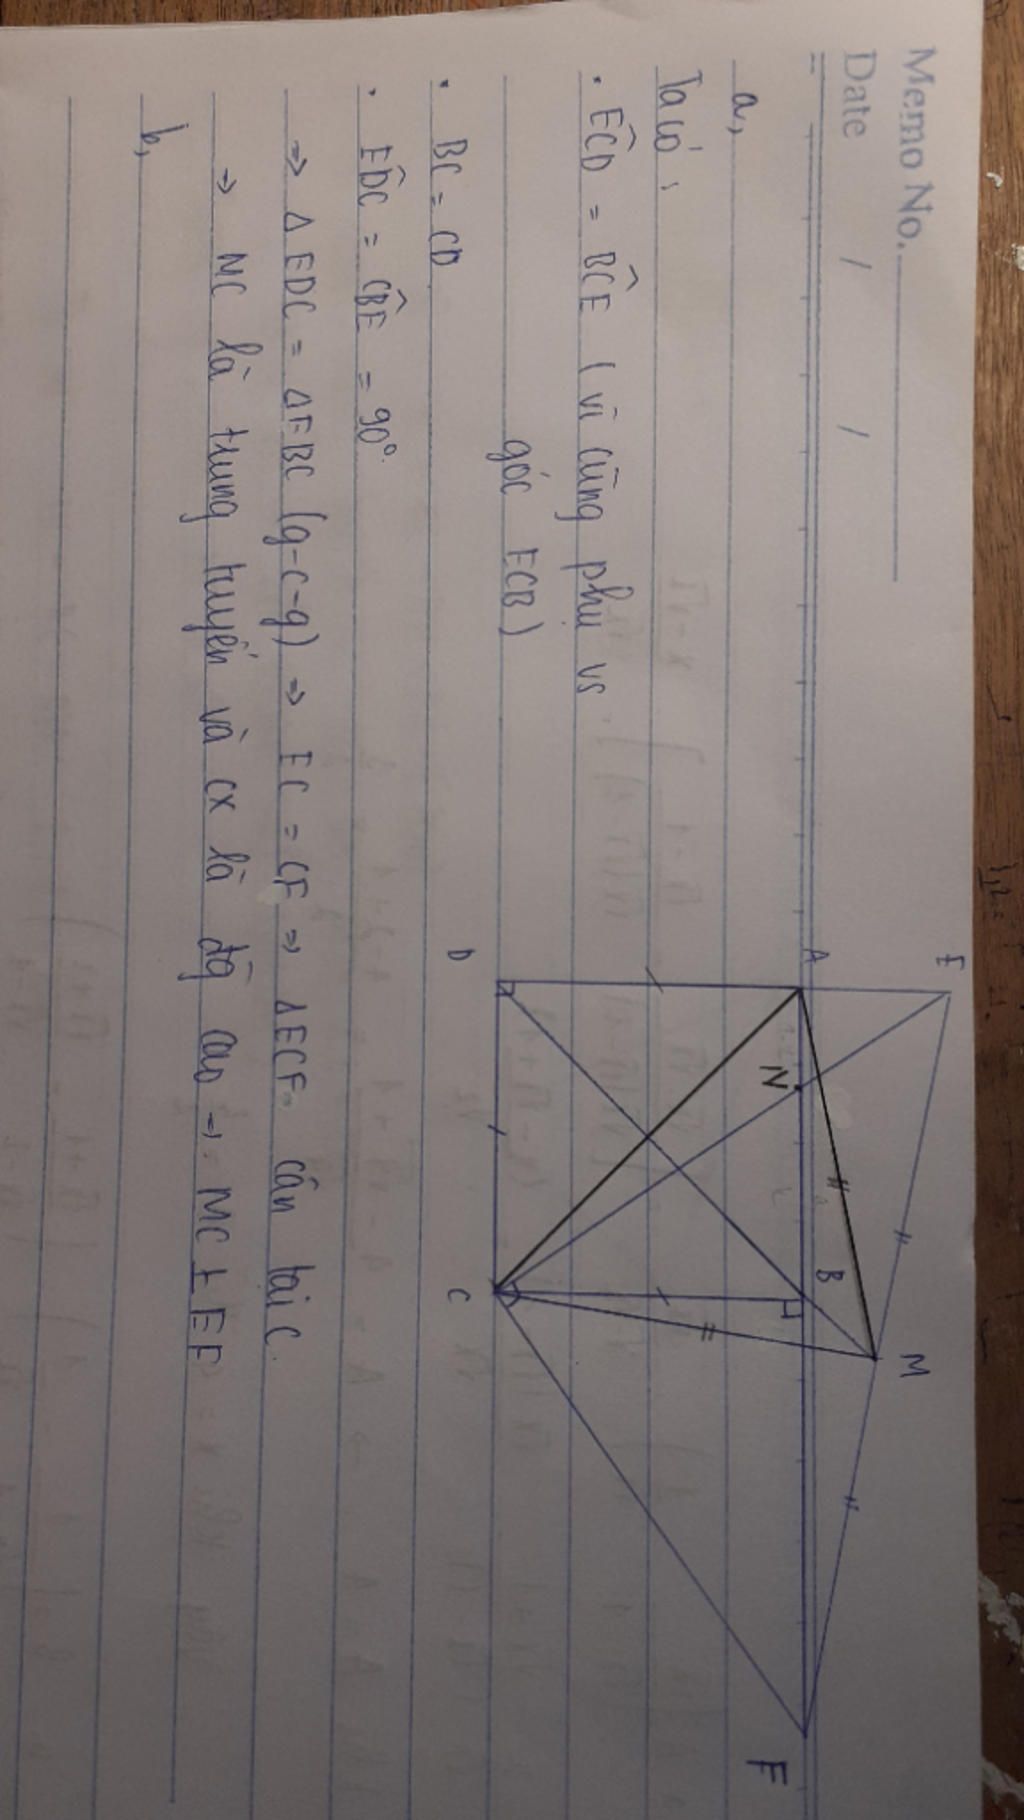 Memo No.
Date / /
a,
Ta có:
• EĈD = BĈE (vì cùng phụ vs
góc ECB)
• BC = CD
• ED̂C = CB̂E = 90°
⇒ Δ EDC = Δ FBC (g-c-g) ⇒ EC = CF ⇒ Δ ECF cân tại C
⇒ MC là trung tuyến và CX là đg cao → MC ⊥ EF
b,
E
A
M
N
B
H
D
C
F